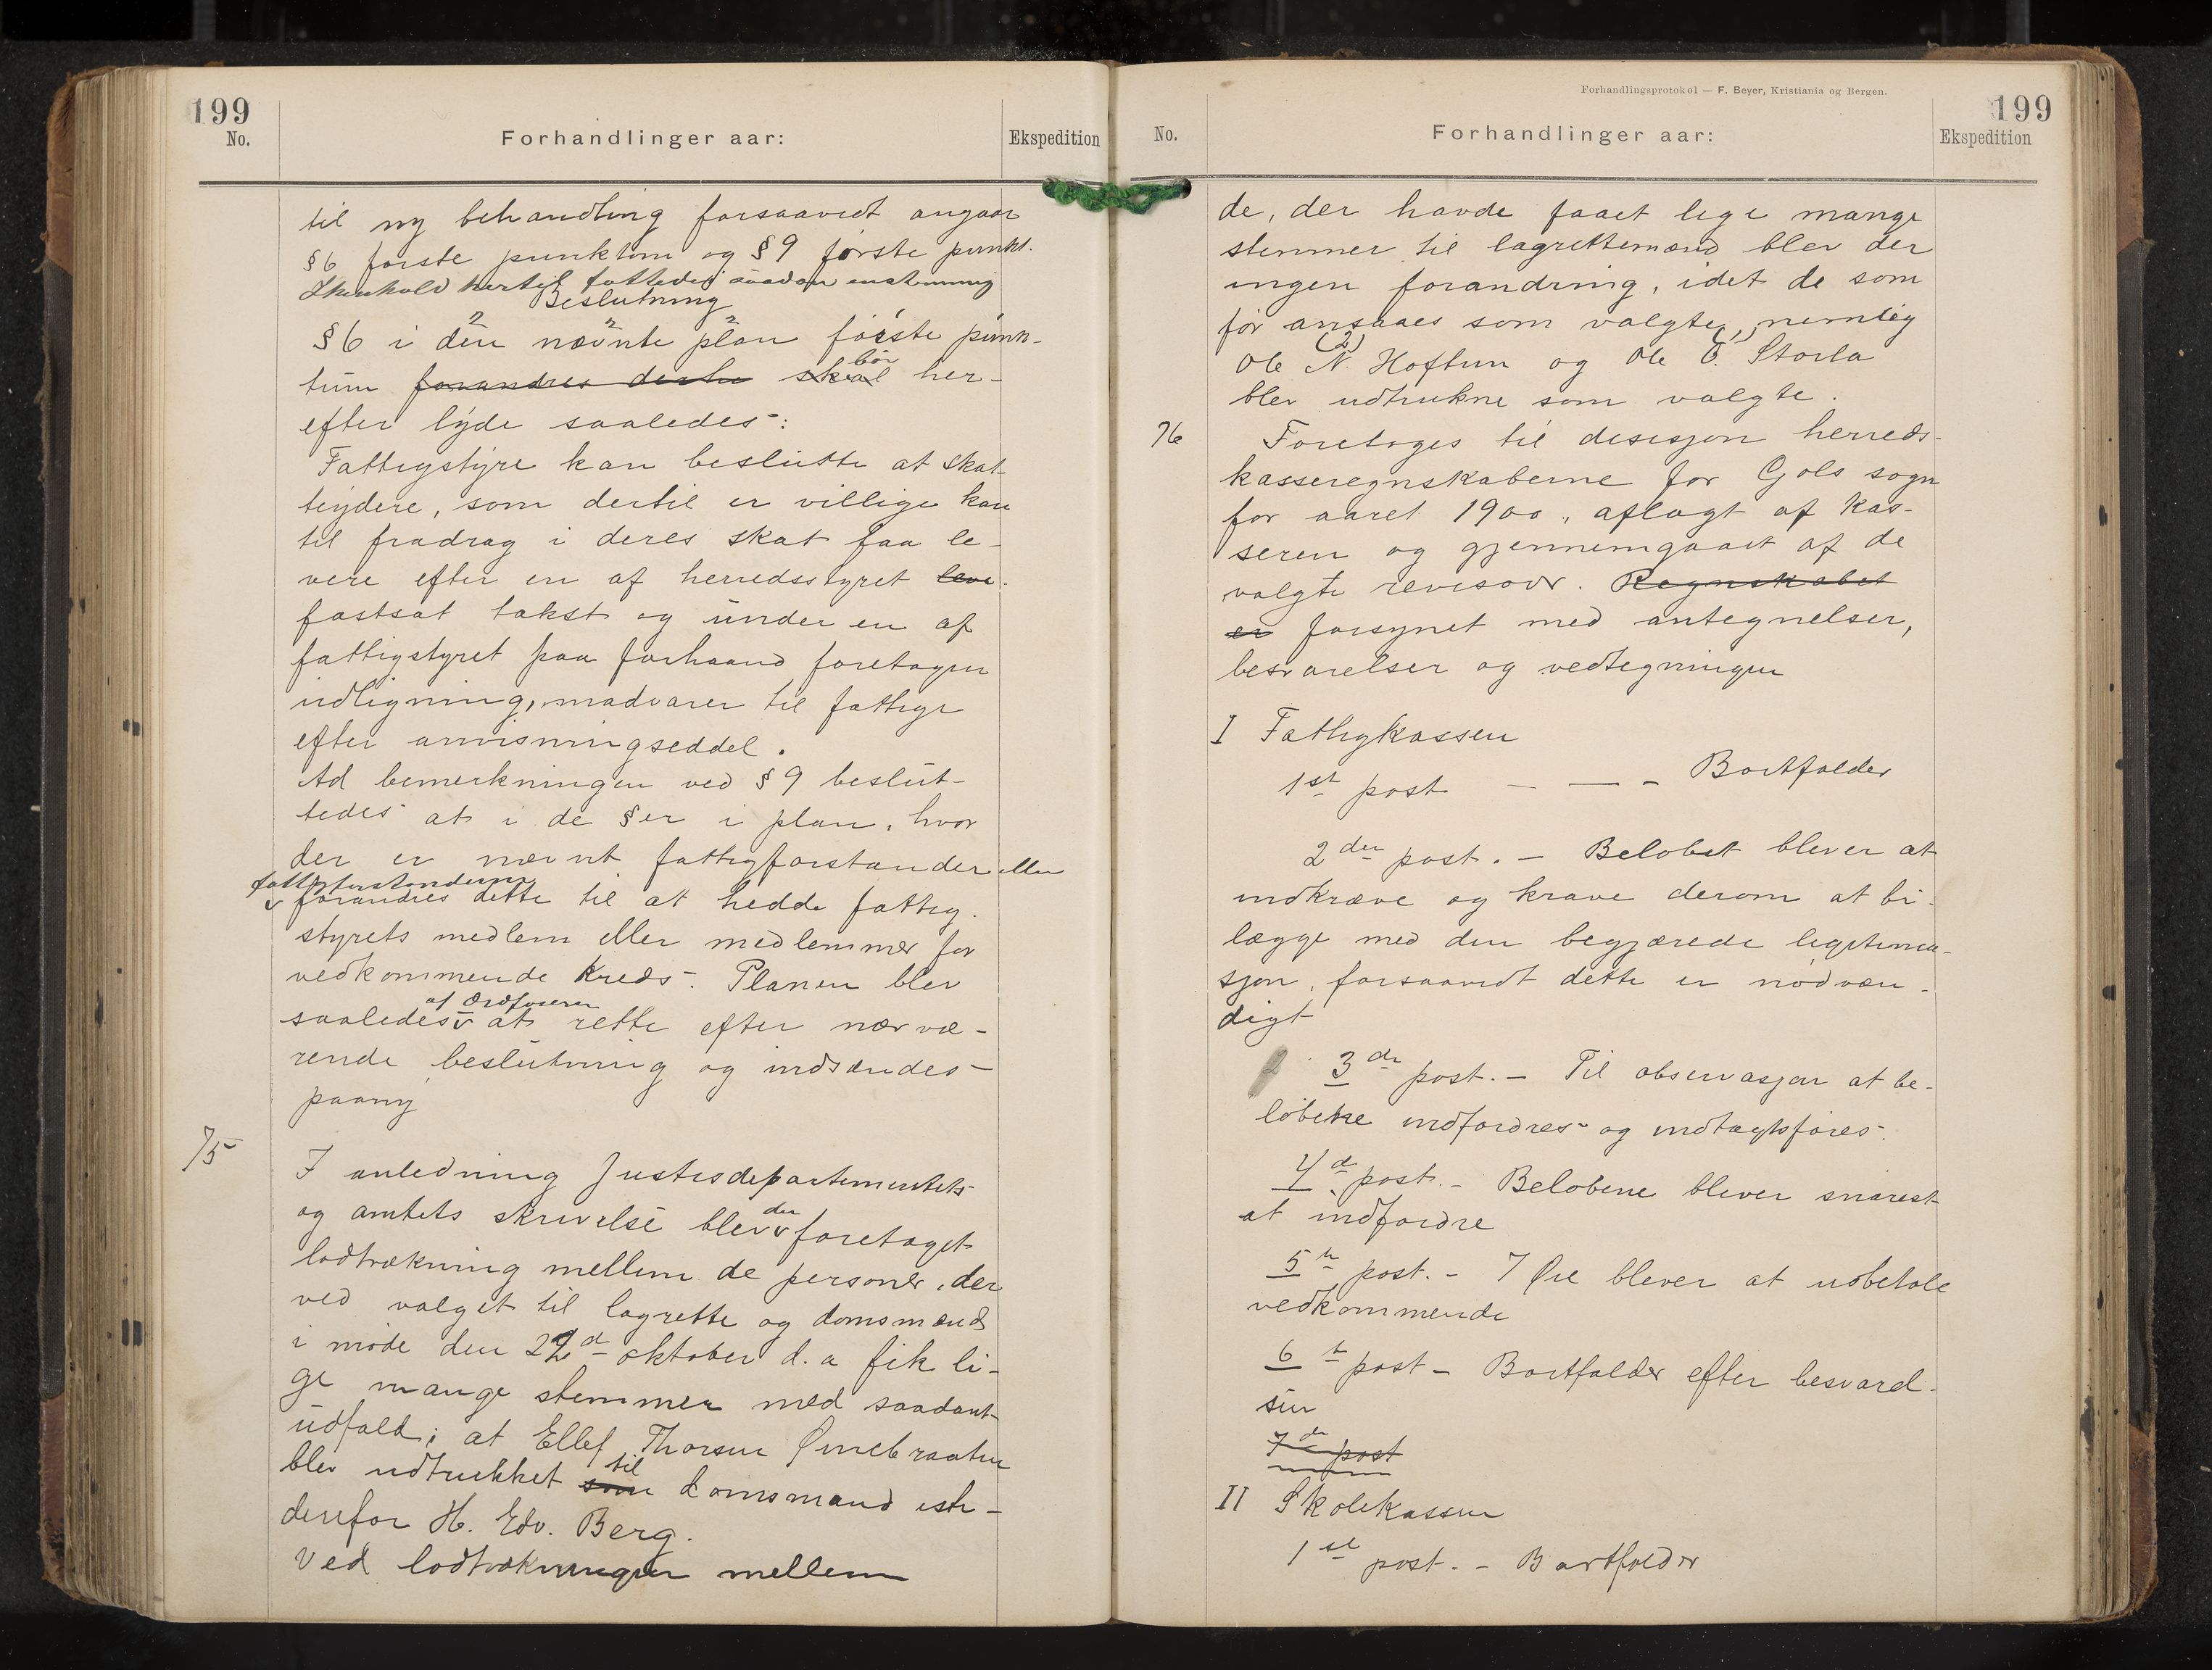 199
No.
Forhandlinger aar:
Ekspedition
til ny behandling forsaavidt angaar
§6 første punktum og §9 første punkt.
I henhold hertil fattedes saadan enstemmig
Beslutning
§6 i den nævnte plan første punk-
tum forandres derhe skal bør her-
efter lyde saaledes:
Fattigstyre kan beslutte at skat-
teydere, som dertil er villige kan
til fradrag i deres skat faa le-
vere efter en af herredsstyret leve
fastsat takst og under en af
fattigstyret paa forhaand foretagen
udligning, madvarer til fattige
efter anvisningseddel.
Ad bemerkningen ved §9 beslut-
tedes at i de §er i plan, hvor
der er nævnt fattigforstander eller
fattigforstanderne
forandres dette til at hedde fattig-
styrets medlem eller medlemmer for
vedkommende kreds. Planen blev
af ordføreren
saaledes at rette efter nærvæ-
rende beslutning og indsændes
paany
75
I anledning Justisdepartementets
og amtets skrivelse blev der foretaget
lodtrækning mellem de personer, der
ved valget til lagrette og domsmænd
i møde den 22d oktober d. a fik li-
ge mange stemmer med saadant
udfald; at Ellef Thorsen
blev udtrukket som til domsmand iste-
denfor H. Edv. Berg.
Ved lodtrækningen mellem
Forhandlingsprotokol — F. Beyer, Kristiania og Bergen.
199
No.
Forhandlinger aar:
Ekspedition
de, der havde faaet lige mange
stemmer til lagrettemænd blev der
ingen forandring, idet de som
før ansaaes som valgte, nemlig
(2) (1)
Ole N. Hoftun og Ole O. Storla
blev udtrukne som valgte.
76
Foretoges til desisjon herreds-
kasseregnskaberne for Gols sogn
for aaret 1900, aflagt af kas-
seren og gjennemgaaet af de
valgte revisorer. Regnskabet
er forsynet med antegnelser,
besvarelser og vedtegninger
I Fattigkassen
1st post — — - Bortfalder
2den post. - Beløbet bliver at
indkræve og krave derom at bi-
lægge med den begjærede legitima-
sjon, forsaavidt dette er nødven-
digt
3de post. - Til observasjon at be-
løbene indfordres og indtægtsføres.
4de post. - Beløbene bliver snarest
at indfordre
5te post. - 7 Øre bliver at udbetale
vedkommende
6te post - Bortfalder efter besvarel-
sen
7de post
II Skolekassen
1st post. - Bortfalder